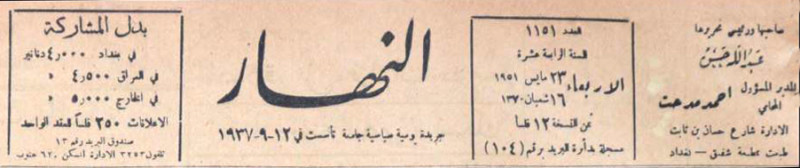 صاحبها ورئيس تحريرها
عبد الله حسن
المدير المسؤول
المحامي
احمد مدحت
الادارة شارع حسان بن ثابت
طبعت بمطبعة شفيق - بغداد
العدد ١١٥١
السنة الرابعة عشرة
الاربعاء
٢٣ مايس ١٩٥١
١٦ شعبان ١٣٧٠
ثمن النسخة ١٢ فلسا
مسجلة بدائرة البريد برقم (١٠٤)
النهار
جريدة يومية سياسية جامعة تأسست في ١٢-٩-١٩٣٧
بدل المشاركة
في بغداد ٤٫٠٠٠ دنانير
في العراق ٤٫٥٠٠ »
في الخارج ٥٫٠٠٠ »
الاعلانات ٢٥٠ فلساً للعقد الواحد
صندوق البريد رقم ١٣
تلفون ٣٢٥٣ الادارة السكن ٦٢ جنوب